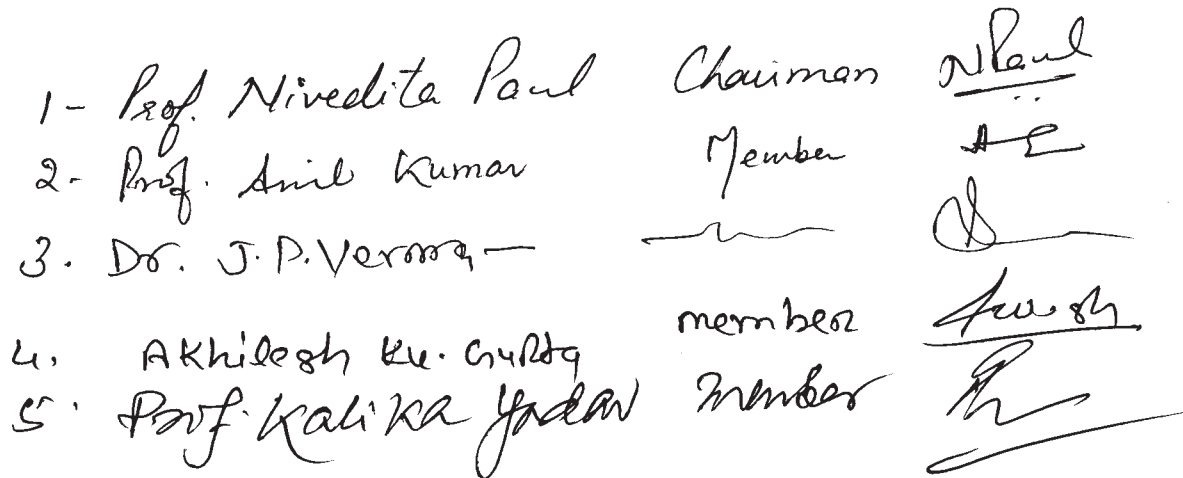 1- Prof. Nivedita Paul Chairman NPaul
2- Prof. Anil Kumar Member
3. Dr. J.P. Verma — —〃—
4. Akhilesh Ku. Gupta member
5. Prof. Kalika Yadav member